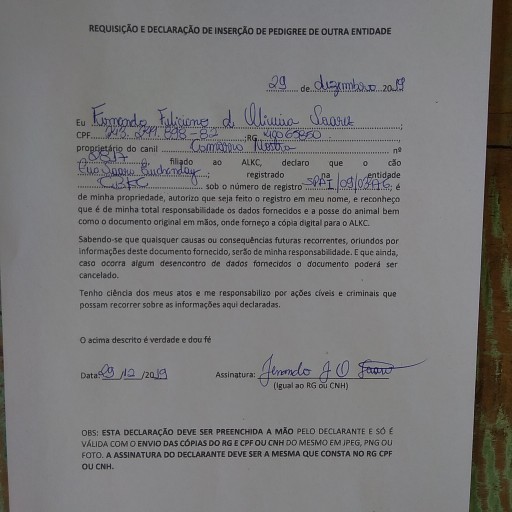 REQUISIÇÃO E DECLARAÇÃO DE INSERÇÃO DE PEDIGREE DE OUTRA ENTIDADE
29 de dezembro 2019
Eu Fernando Feliciano d Oliveira Soares ;
CPF ;RG
proprietário do canil nº
0817 filiado ao ALKC, declaro que o cão
; registrado na entidade
CBKC sob o número de registro ; é
de minha propriedade, autorizo que seja feito o registro em meu nome, e reconheço
que é de minha total responsabilidade os dados fornecidos e a posse do animal bem
como o documento original em mãos, onde forneço a cópia digital para o ALKC.
Sabendo-se que quaisquer causas ou consequências futuras recorrentes, oriundos por
informações deste documento fornecido, serão de minha responsabilidade. E que ainda,
caso ocorra algum desencontro de dados fornecidos o documento poderá ser
cancelado.
Tenho ciência dos meus atos e me responsabilizo por ações cíveis e criminais que
possam recorrer sobre as informações aqui declaradas.
O acima descrito é verdade e dou fé
Data: 29 /12 /2019 Assinatura: Fernando J O Soares
(Igual ao RG ou CNH)
OBS: ESTA DECLARAÇÃO DEVE SER PREENCHIDA A MÃO PELO DECLARANTE E SÓ É
VÁLIDA COM O ENVIO DAS CÓPIAS DO RG E CPF OU CNH DO MESMO EM JPEG, PNG OU
FOTO. A ASSINATURA DO DECLARANTE DEVE SER A MESMA QUE CONSTA NO RG CPF
OU CNH.